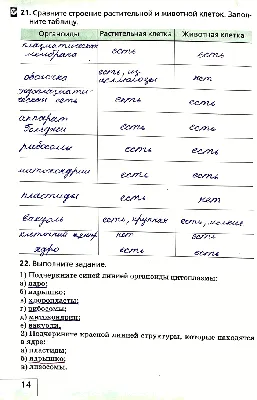 21. Сравните строение растительной и животной клеток. Заполните таблицу.
Органоиды Растительная клетка Животная клетка
плазматическая мембрана есть есть
оболочка есть, из целлюлозы нет
эндоплазматическая сеть есть есть
аппарат Гольджи есть есть
рибосомы есть есть
митохондрии есть есть
пластиды есть нет
вакуоль есть, крупная есть, мелкие
клеточный центр нет есть
ядро есть есть
22. Выполните задание.
1) Подчеркните синей линией органоиды цитоплазмы:
а) ядро;
б) ядрышко;
в) хлоропласты;
г) рибосомы;
д) митохондрии;
е) вакуоли.
2) Подчеркните красной линией структуры, которые находятся
в ядре:
а) пластиды;
б) ядрышко;
в) лизосомы.
14